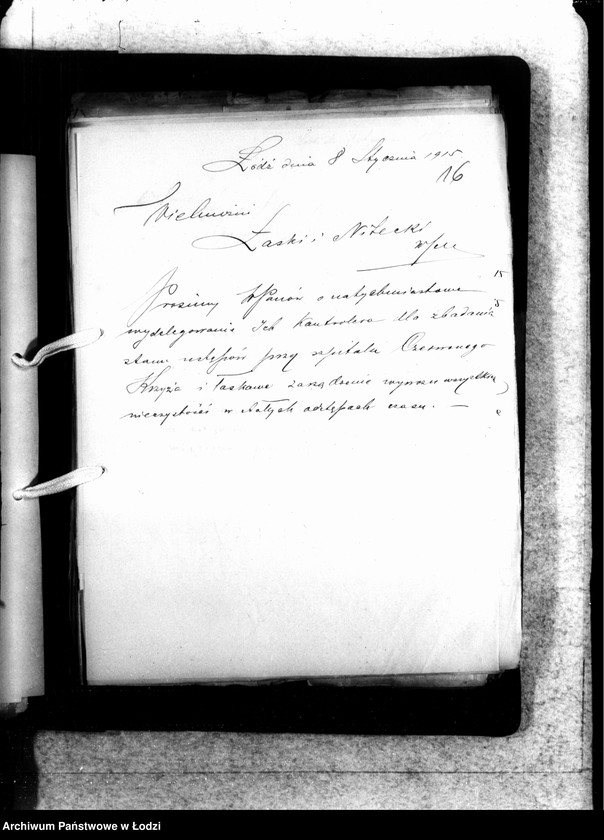 Łódź dnia 8 Stycznia 1915
16
Wielmożni
Łaski i Nitecki
w/m
Prosimy WPanów o natychmiastowe
wydelegowanie Ich Kontrolera dla zbadania
stanu ustępów przy szpitalu Czerwonego
Krzyża i łaskawe zarządzenie wywozu wszystkich
nieczystości w stałych odstępach czasu. —
Archiwum Państwowe w Łodzi